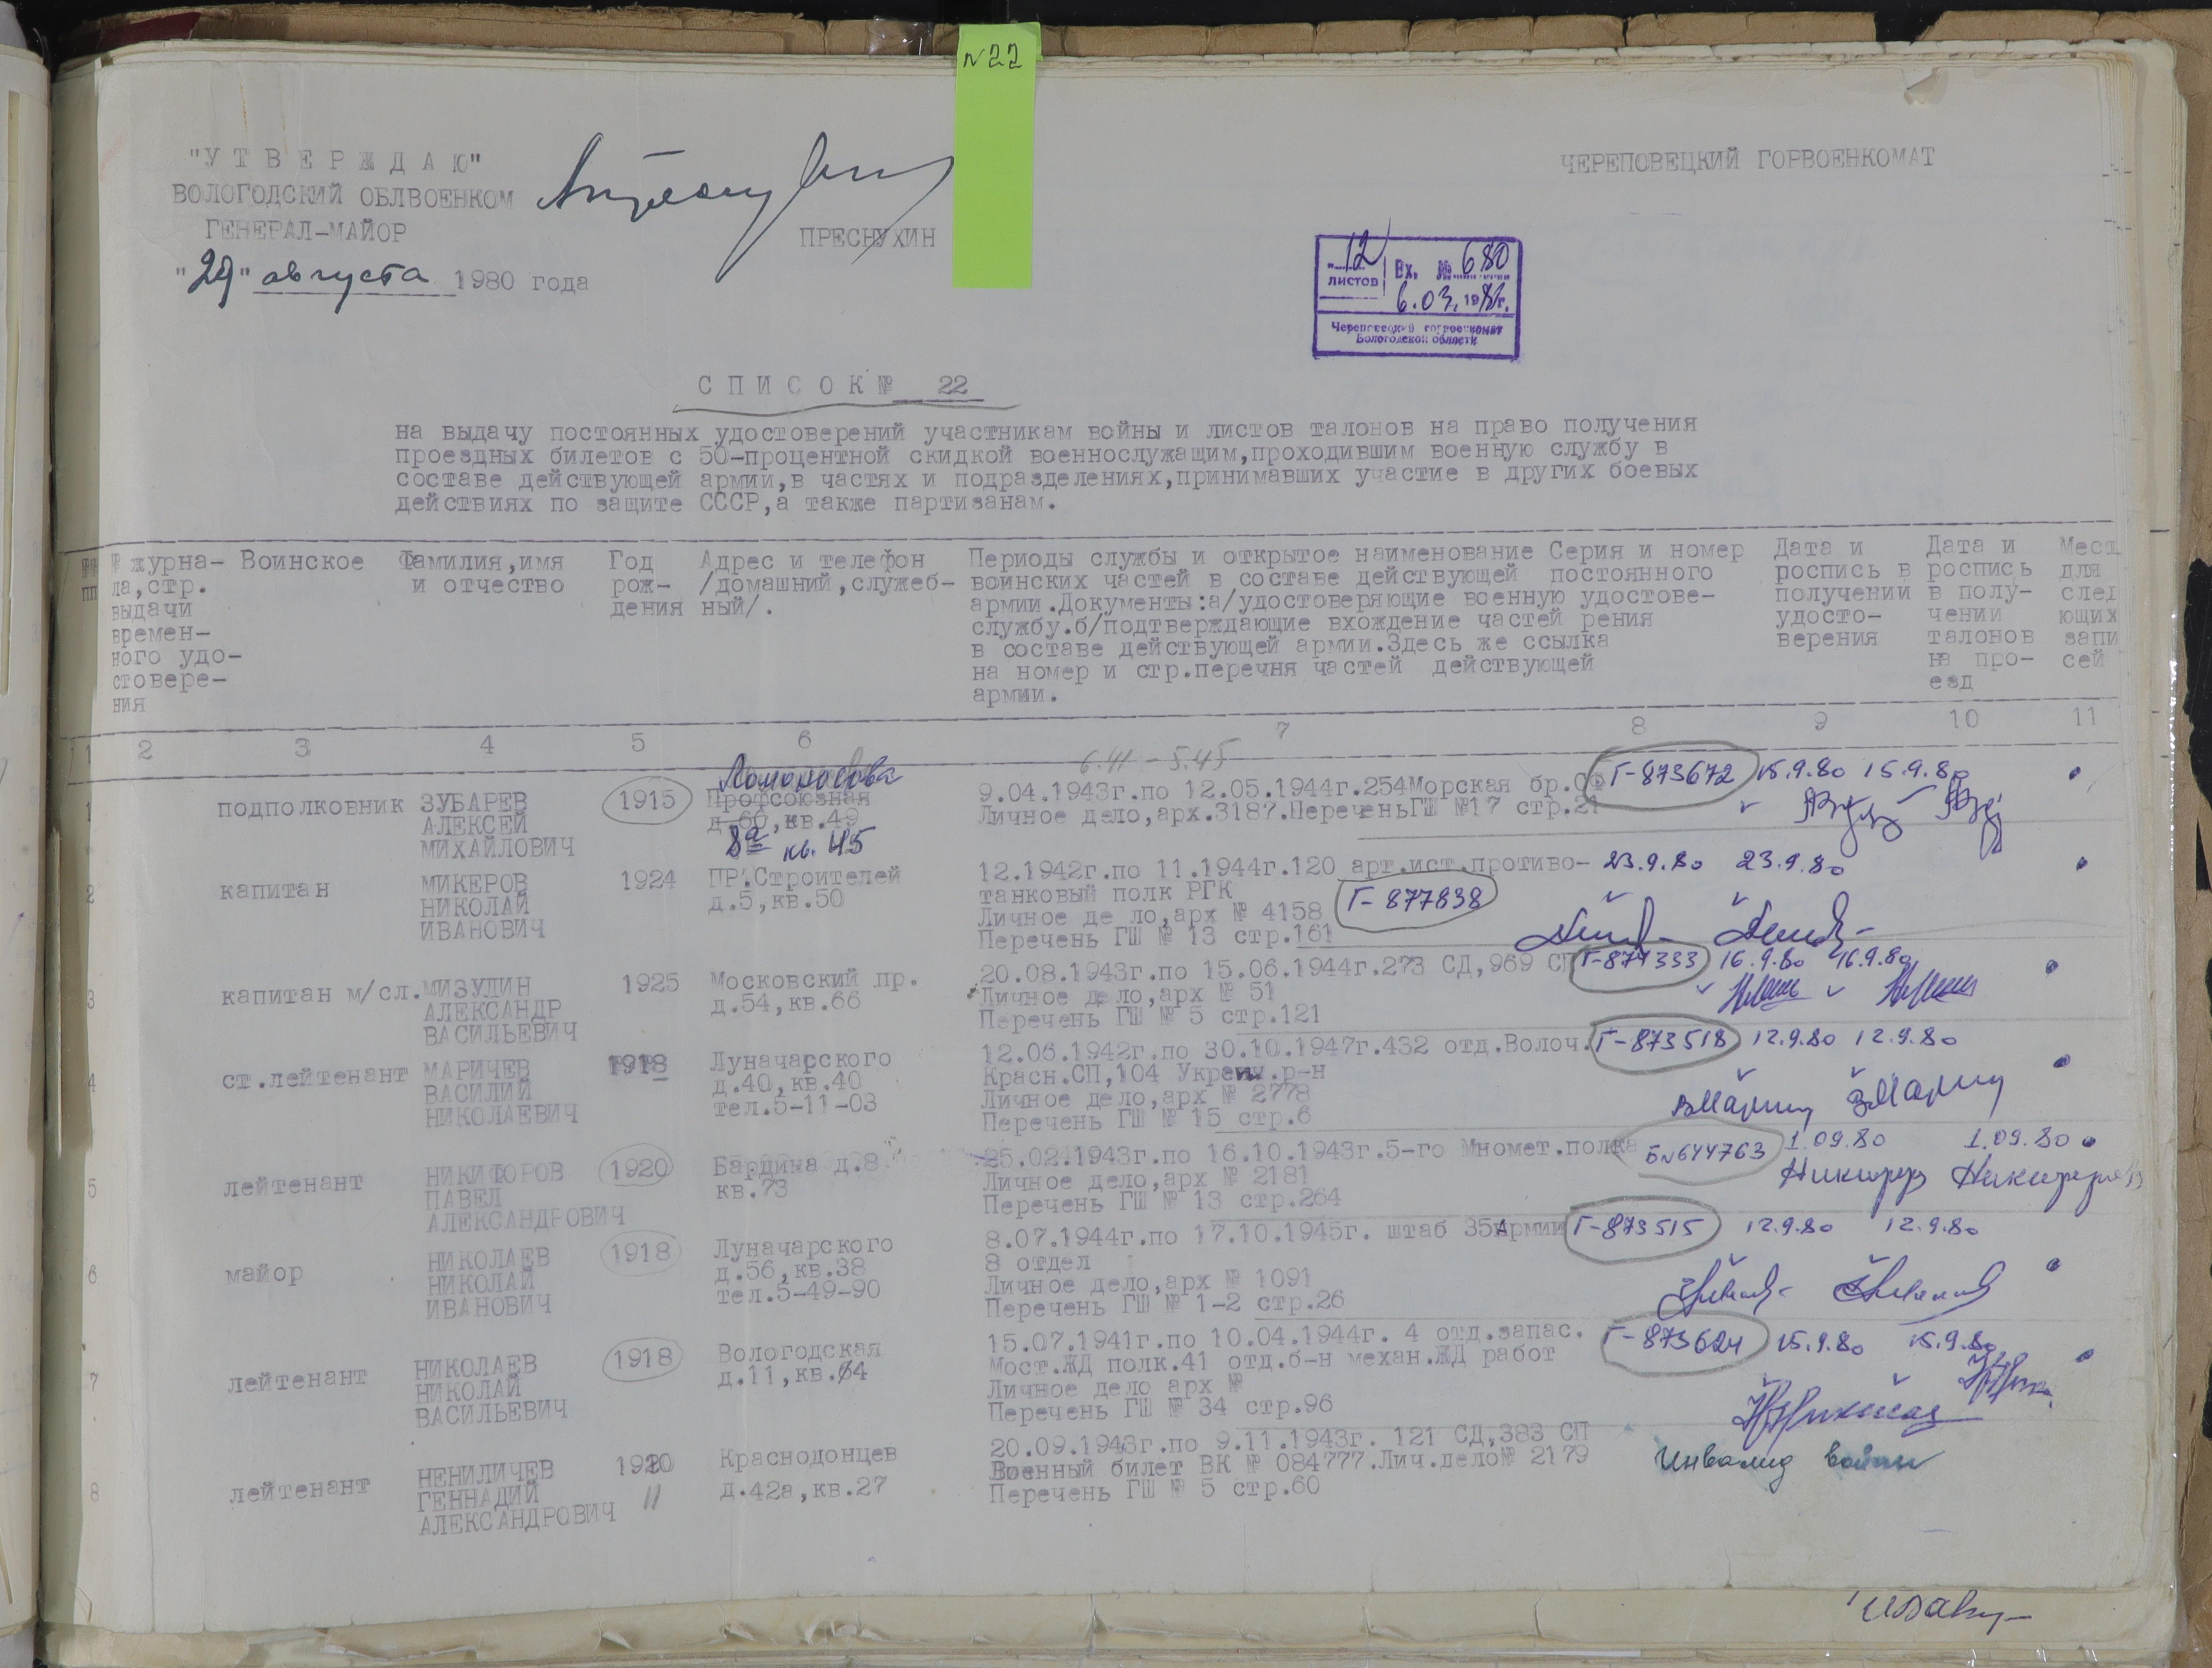 N22
"У Т В Е Р Ж Д А Ю"
ВОЛОГОДСКИЙ ОБЛВОЕНКОМ
ГЕНЕРАЛ-МАЙОР
ПРЕСНУХИН
"29" августа 1980 года
ЧЕРЕПОВЕЦКИЙ ГОРВОЕНКОМАТ
12 листов Вх. № 680
6.03.198 г.
Череповецкий горвоенкомат
Вологодской области
С П И С О К № 22
на выдачу постоянных удостоверений участникам войны и листов талонов на право получения
проездных билетов с 50-процентной скидкой военнослужащим,проходившим военную службу в
составе действующей армии,в частях и подразделениях,принимавших участие в других боевых
действиях по защите СССР,а также партизанам.
№№ пп
№ журна-
ла,стр.
выдачи
времен-
ного удо-
стовере-
ния
Воинское
Фамилия,имя
и отчество
Год
рож-
дения
Адрес и телефон
/домашний,служеб-
ный/.
Периоды службы и открытое наименование
воинских частей в составе действующей
армии.Документы:а/удостоверяющие военную
службу.б/подтверждающие вхождение частей
в составе действующей армии.Здесь же ссылка
на номер и стр.перечня частей действующей
армии.
Серия и номер
постоянного
удостове-
рения
Дата и
роспись в
получении
удосто-
верения
Дата и
роспись
в полу-
чении
талонов
на про-
езд
Мест
для
след
ющих
запи
сей
1 2 3 4 5 6 7 8 9 10 11
6.41 - 5.45
1 подполковник ЗУБАРЕВ
АЛЕКСЕЙ
МИХАЙЛОВИЧ
1915
Ломоносова
Профсоюзная
д.60,кв.49
8а кв. 45
9.04.1943г.по 12.05.1944г.254Морская бр.СФ
Личное дело,арх.3187.ПереченьГШ №17 стр.21
Г-873672 15.9.80 15.9.80
2 капитан МИКЕРОВ
НИКОЛАЙ
ИВАНОВИЧ
1924
ПР.Строителей
д.5,кв.50
12.1942г.по 11.1944г.120 арт.ист.противо-
танковый полк РГК
Личное де ло,арх № 4158
Перечень ГШ № 13 стр.161
Г-877838 23.9.80 23.9.80
3 капитан м/сл. МИЗУЛИН
АЛЕКСАНДР
ВАСИЛЬЕВИЧ
1925
Московский пр.
д.54,кв.66
20.08.1943г.по 15.06.1944г.273 СД,969 СП
Личное де ло,арх № 51
Перечень ГШ № 5 стр.121
Г-874333 16.9.80 16.9.80
4 ст.лейтенант МАРИЧЕВ
ВАСИЛИЙ
НИКОЛАЕВИЧ
1918
Луначарского
д.40,кв.40
тел.5-11-03
12.06.1942г.по 30.10.1947г.432 отд.Волоч.
Красн.СП,104 Укреп.р-н
Личное дело,арх № 2778
Перечень ГШ № 15 стр.6
Г-873518 12.9.80 12.9.80
5 лейтенант НИКИФОРОВ
ПАВЕЛ
АЛЕКСАНДРОВИЧ
1920
Бардина д.8
кв.73
25.02.1943г.по 16.10.1943г.5-го Мномет.полка
Личное дело,арх № 2181
Перечень ГШ № 13 стр.264
Б№644763 1.09.80 1.09.80
6 майор НИКОЛАЕВ
НИКОЛАЙ
ИВАНОВИЧ
1918
Луначарского
д.56,кв.38
тел.5-49-90
8.07.1944г.по 17.10.1945г. штаб 35Армии
8 отдел
Личное дело,арх № 1091
Перечень ГШ № 1-2 стр.26
Г-873515 12.9.80 12.9.80
7 лейтенант НИКОЛАЕВ
НИКОЛАЙ
ВАСИЛЬЕВИЧ
1918
Вологодская
д.11,кв.64
15.07.1941г.по 10.04.1944г. 4 отд.запас.
Мост.ЖД полк.41 отд.б-н механ.ЖД работ
Личное дело арх №
Перечень ГШ № 34 стр.96
Г-873624 15.9.80 15.9.80
8 лейтенант НЕНИЛИЧЕВ
ГЕННАДИЙ
АЛЕКСАНДРОВИЧ
1920
Краснодонцев
д.42а,кв.27
20.09.1943г.по 9.11.1943г. 121 СД,383 СП
Военный билет ВК № 084777.Лич.дело№ 2179
Перечень ГШ № 5 стр.60
Инвалид войны